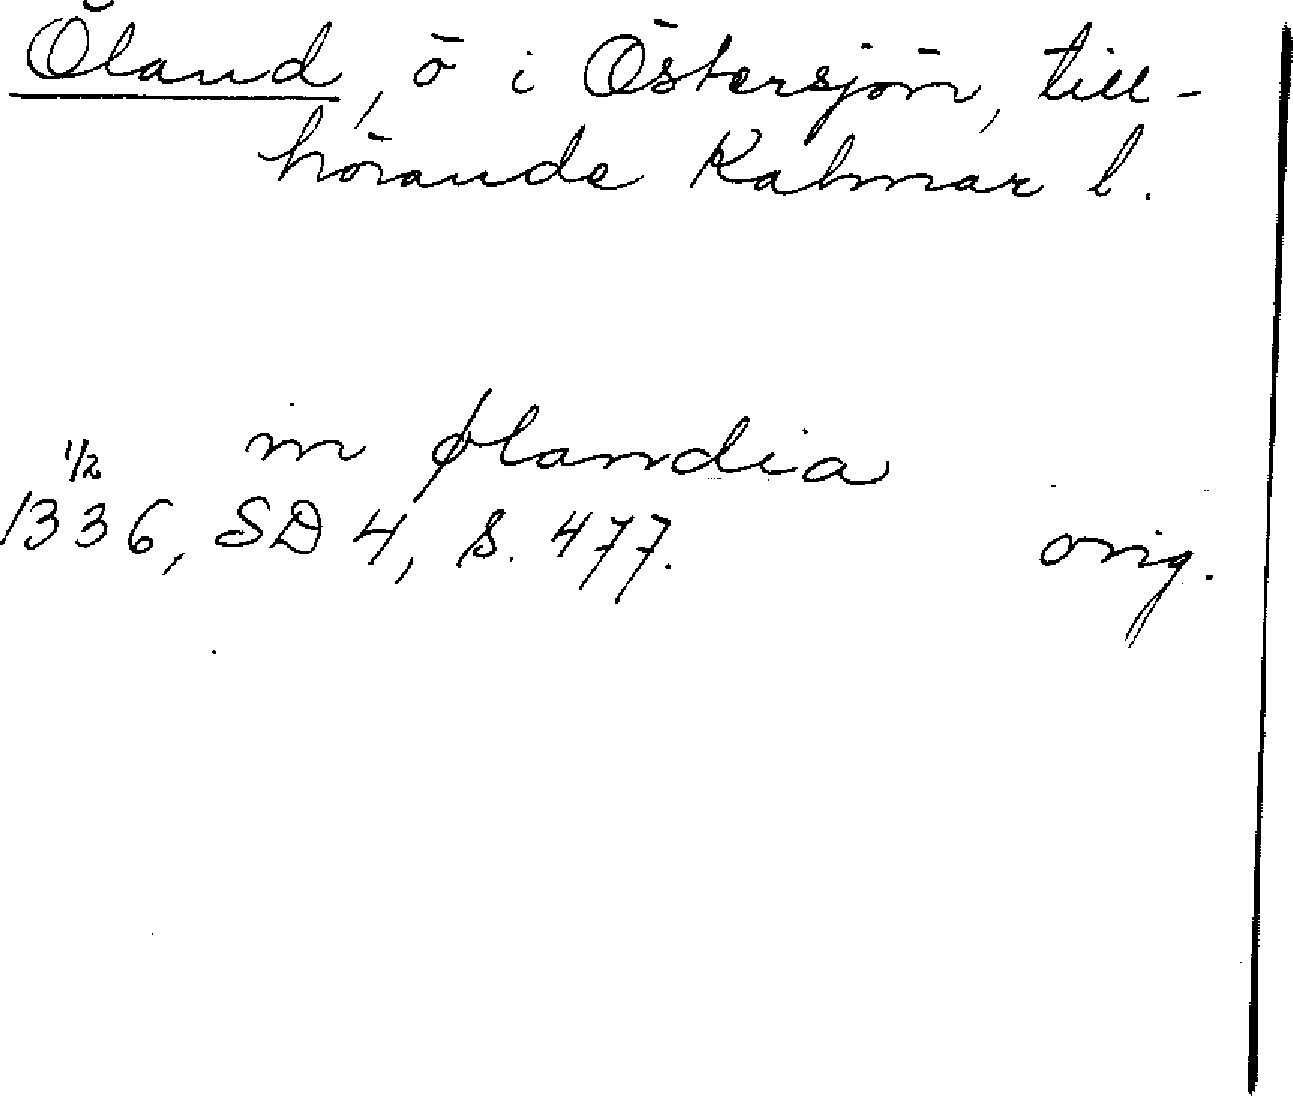 Öland, ö i Östersjön, till-
hörande Kalmar l.
in ølandia
1/2
1336, SD 4, s. 477. orig.